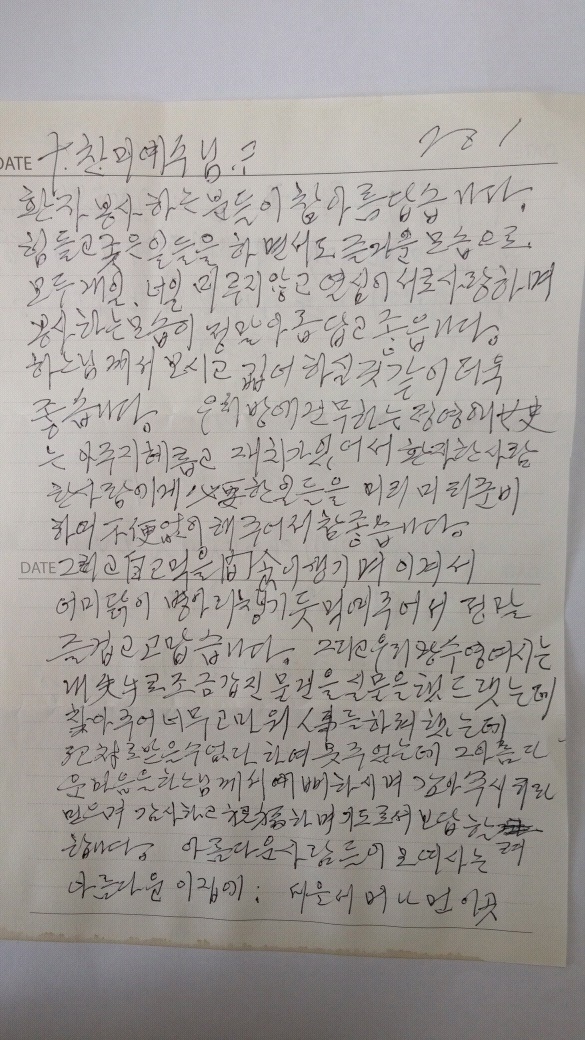 DATE 찬미예수님.
환자 봉사하는 분들이 참 아름답습니다.
힘들고 궂은 일들을 하면서도 즐거운 모습으로.
모두 개일, 너일 미루지 않고 열심이 서로 사랑하며
봉사하는 모습이 정말 아름답고 좋습니다.
하느님께서 보시고 하실 것 같이 더욱
좋습니다. 우리방에 근무하는 정영애 女史
는 아주 지혜롭고 재치가 있어서 환자 한사람
한사람에게 必要한 일들을 미리 미리 준비
하여 不便없이 해주어서 참 좋습니다.
DATE 그리고 自고 먹을 間食이 생기며 이겨서
어미닭이 병아리 챙기듯 먹여주어서 정말
즐겁고 고맙습니다. 그리고 우리 수영여사는
내 失手로 조금 값진 물건을 했드랬는데
찾아주어 너무 고마워 人事를 하려 했는데
로 받을 수 없다 하여 못주었는데 그 아름다
운 마음을 하느님께서 예뻐하시며 갚아주시리라
믿으며 감사하고 祝福하며 기도로서 보답할
합니다. 아름다운 사람들이 모여사는
아름다운 이집에: 세울세 머나먼 이곳